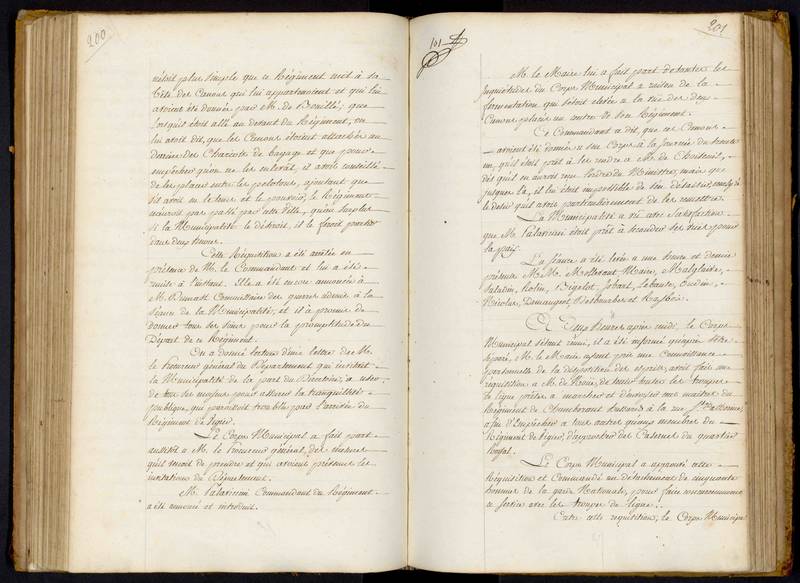 200
n'était plus simple que ce Régiment mit à sa
tête des Canons qui lui appartenaient et qui lui
avoient été donnés par M. de Bouillé; que
lorsqu'il étoit allé au devant du Régiment, on
lui avoit dit, que les Canons étoient attachés au
derrière des Chariots de bagage et que pour
empêcher qu'on ne les enlevât, il avoit conseillé
de les placer entre les pelotons, ajoutant que
s'il avoit eu le tems et le pouvoir, le Régiment
n'auroit pas passé par cette Ville, qu'au surplus
si la Municipalité le désiroit, il le feroit partir
dans deux heures.
Cette Réquisition a été arrêtée en
présence de M. le Commandant et lui a été
remise à l'instant. Elle a été encore annoncée à
M. Commissaire des guerres admis à la
séance de la Municipalité, et il a promis de
donner tous ses soins pour la promptitude du
Départ de ce Régiment.
On a donné lecture d'une lettre de M.
le Procureur général du Département qui invitoit
la Municipalité de la part du Directoire, à user
de tous les moyens pour assurer la tranquillité
publique, qui paroissoit troublée par l'arrivée du
Régiment de ligne.
Le Corps Municipal a fait part
aussitôt à M. le Procureur général, des mesures
qu'il venoit de prendre et qui avoient prévenu les
invitations du Département.
M. Commandant du Régiment
a été annoncé et introduit.
101
201
M. le Maire lui a fait part de toutes les
inquiétudes du Corps Municipal à raison de la
fermentation qui s'étoit élevée à la vue des deux
Canons placés au centre de son Régiment.
Ce Commandant a dit, que ces Canons
avoient été donnés à son Corps à la journée du trente
un, qu'il étoit prêt à les rendre à M. de Choiseul,
dès qu'il en auroit reçu l'ordre du Ministre, mais que
jusques là, il lui étoit impossible de s'en désaisir, malgré
le désir qu'il avoit particulièrement de les remettre.
La Municipalité a vu avec satisfaction
que M. étoit prêt à seconder ses vues pour
la paix.
La séance a été levée à une heure et demie
présens M.M. Mollevaut Maire, Malglaive,
Saladin, Rolin, Bigelot, Jobart, Lebaute, Oudin,
Nicolas, Demangeot, Desbourbes et Rasbois.
A Deux heures après midi, le Corps
Municipal s'étant réuni, il a été informé qu'après s'être
séparé, M. le Maire ayant pris une Connoissance
personnelle de la disposition des esprits, avoit fait une
réquisition à M. de de tenir toutes les troupes
de ligne prêtes à marcher et d'envoyer une moitié du
Régiment de Chamborant hussards à la rue Ste Catherine,
afin d'Empêcher à tous autres qu'aux membres du
Régiment de ligne, d'approcher des Casernes du quartier
Royal.
Le Corps Municipal a approuvé cette
Réquisition et Commandé un détachement de cinquante
hommes de la garde Nationale, pour faire
ce service avec les troupes de ligne.
Entre cette réquisition, le Corps Municipal